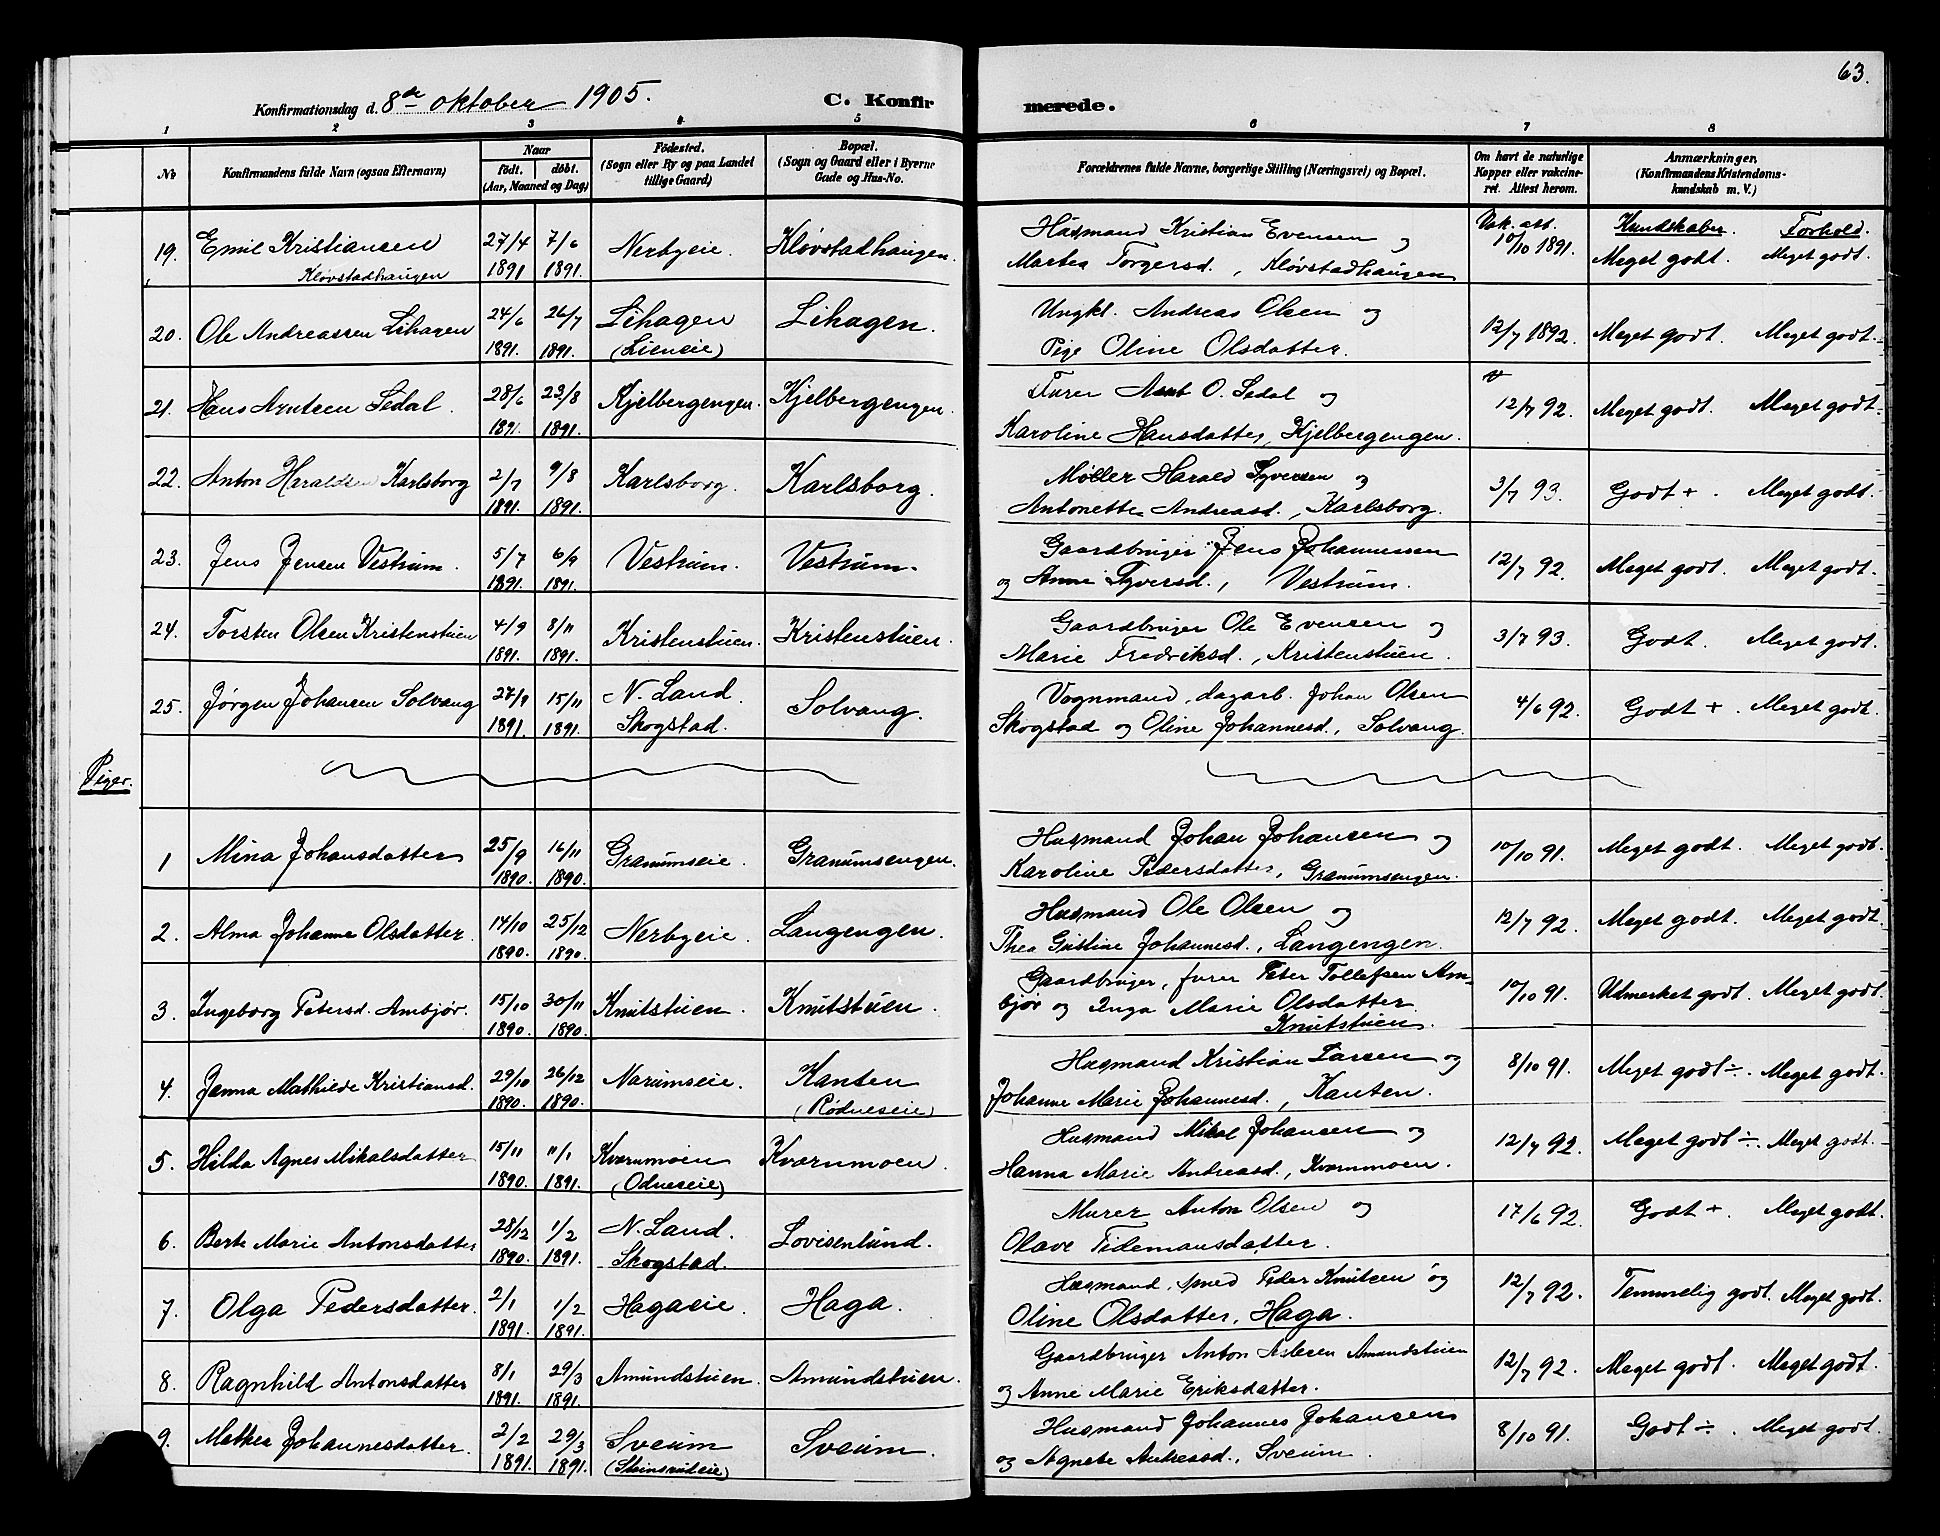 63.
Konfirmationsdag d. 8de oktober 1905.
C. Konfirmerede.
1 2 3 4 5 6 7 8
No
Konfirmandens fulde Navn (ogsaa Efternavn)
Naar
født. døbt.
(Aar, Maaned og Dag)
Fødested.
(Sogn eller By og paa Landet
tillige Gaard)
Bopæl.
(Sogn og Gaard eller i Byerne
Gade og Hus-No.
Forældrenes fulde Navne, borgerlige Stilling (Næringsvei) og Bopæl.
Om havt de naturlige
Kopper eller vakcine-
ret. Attest herom.
Anmærkninger.
(Konfirmandens Kristendoms-
kundskab m. V.)
Kundskaber. Forhold.
19. Emil Kristiansen 27/4 7/6 Nerbyeie. Kløvstadhaugen. Husmand Kristian Evensen og Vak. att. 10/10 1891. Meget godt. Meget godt.
Kløvstadhaugen 1891 1891. Martea Torgersd., Kløvstadhaugen
20. Ole Andreassen Lihagen 24/6 26/7 Lihagen Lihagen. Ungkl. Andreas Olsen og 12/7 1892. Meget godt. Meget godt.
1891. 1891. (Lieneie) Pige Oline Olsdatter.
21. Hans Arntsen Sedal. 28/6 23/8 Kjelbergengen. Kjelbergengen. Furer Arnt O. Sedal og 12/7 92. Meget godt. Meget godt.
1891. 1891. Karoline Hansdatter, Kjelbergengen.
22. Anton Haraldsen Karlsborg 2/7 9/8 Karlsborg. Karlsborg. Møller Harald Syversen og 3/7 93. Godt +. Meget godt.
1891. 1891. Antonette Andreasd., Karlsborg.
23. Jens Jensen Vestrum. 5/7 6/9 Vestrum. Vestrum. Gaardbruger Jens Johannessen 12/7 92. Meget godt. Meget godt.
1891. 1891. og Anne Syversd., Vestrum.
24. Torsten Olsen Kristenstuen 4/9 8/11 Kristenstuen. Kristenstuen. Gaardbruger Ole Evensen og 3/7 93. Godt. Meget godt.
1891. 1891. Marie Fredriksd., Kristenstuen.
25. Jørgen Johansen Solvang 27/9 15/11 N. Land. Solvang. Vognmand, dagarb. Johan Olsen 4/6 92. Godt +. Meget godt.
1891. 1891. Skogstad. Skogstad og Oline Johannesd., Solvang
Piger.
1 Mina Johansdatter 25/9 16/11 Granumseie. Granumsengen. Husmand Johan Johansen og 10/10 91. Meget godt. Meget godt.
1890. 1890. Karoline Pedersdatter, Granumsengen.
2. Alma Johanne Olsdatter. 14/10 25/12 Nerbyeie. Langengen. Husmand Ole Olsen og 12/7 92. Meget godt. Meget godt.
1890. 1890. Thea Gustine Johannesd., Langengen.
3. Ingeborg Petersd. Ambjør. 15/10 30/11 Knutstuen. Knutstuen. Gaardbruger, furer Peter Tollefsen Am- 10/10 91. Udmerket godt. Meget godt.
1890. 1890. bjør og Inga Marie Olsdatter
Knutstuen.
4. Janna Mathilde Kristiansd. 29/10 26/12 Narumseie. Kanten Husmand Kristian Larsen og 8/10 91. Meget godt ÷. Meget godt.
1890. 1890. (Rødneseie) Johanne Marie Johannesd., Kanten.
5. Hilda Agnes Mikalsdatter 15/11 11/1 Kvernmoen Kvernmoen. Husmand Mikal Johansen og 12/7 92. Meget godt ÷. Meget godt.
1890. 1891. (Odneseie) Hanna Marie Andreasd., Kvernmoen.
6. Berte Marie Antonsdatter 28/12 1/2 N. Land. Lovisenlund. Murer Anton Olsen og 17/6 92. Godt +. Meget godt.
1890. 1891. Skogstad. Olave Tidemansdatter.
7. Olga Pedersdatter. 2/1 1/2 Hagaeie. Haga. Husmand, smed Peder Knutsen og 12/7 92. Temmelig godt. Meget godt.
1891. 1891. Oline Olsdatter, Haga.
8. Ragnhild Antonsdatter 8/1 29/3 Amundstuen. Amundstuen. Gaardbruger Anton Aslesen Amundstuen 12/7 92. Meget godt. Meget godt.
1891. 1891. og Anne Marie Eriksdatter.
9. Mathea Johannesdatter. 2/2 29/3 Sveum Sveum. Husmand Johannes Johansen 8/10 91. Godt ÷. Meget godt.
1891. 1891. (Steinsrudeie) og Agnete Andreasd., Sveum.